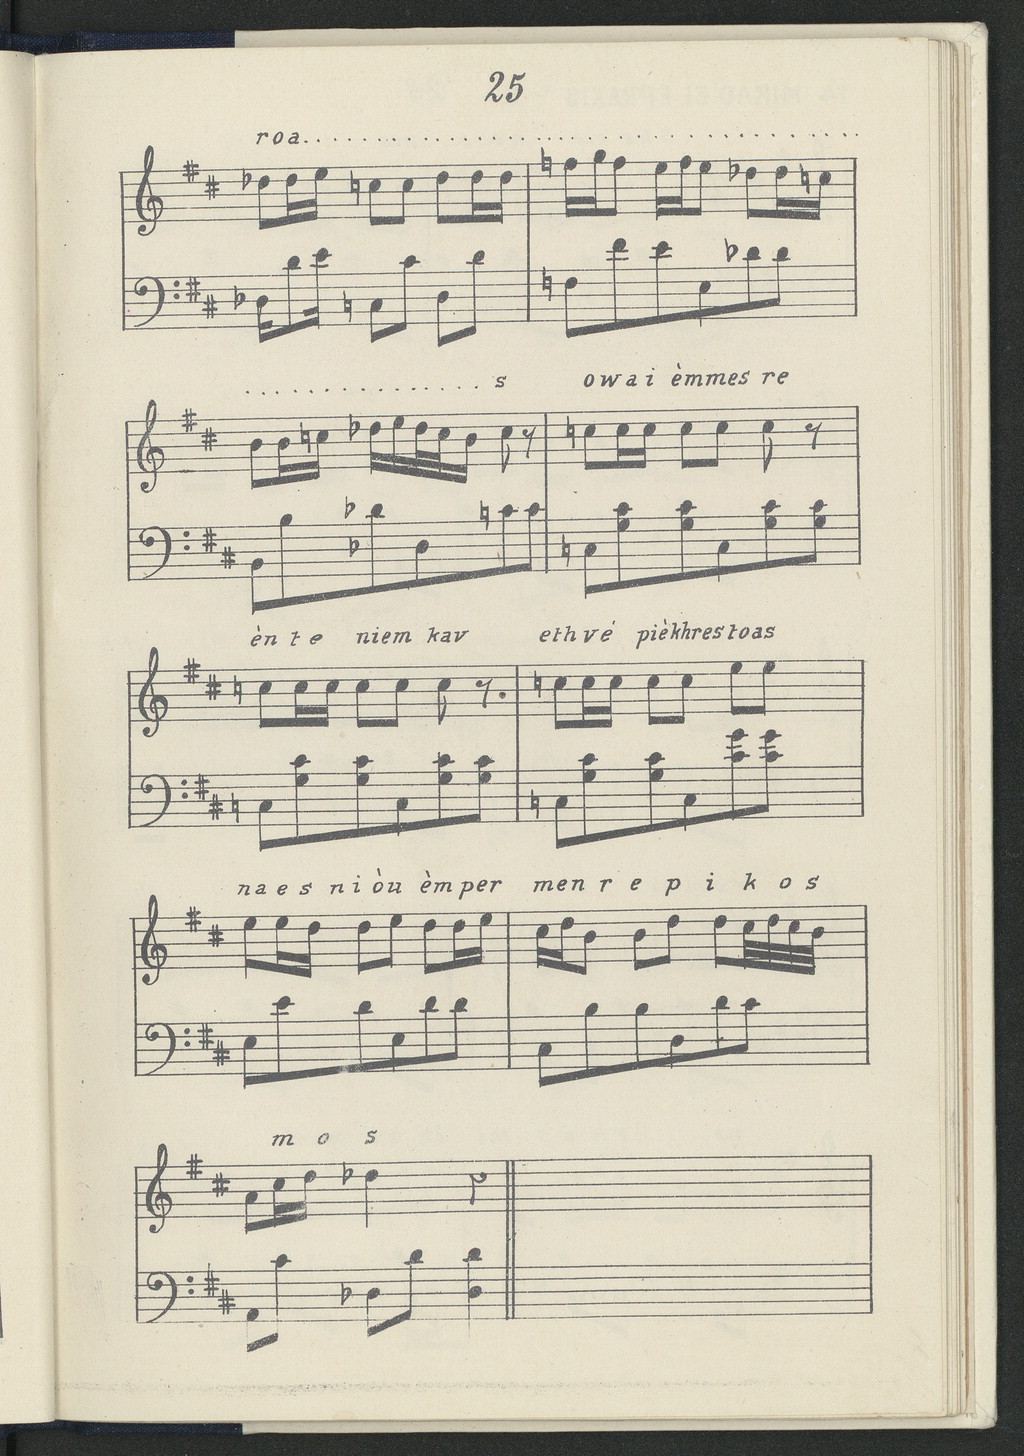 25
roa.......................................
.................s owai èmmes re
èn te niem kav ethvé pièkhrestoas
naes niòu èmper menrepikos
mos